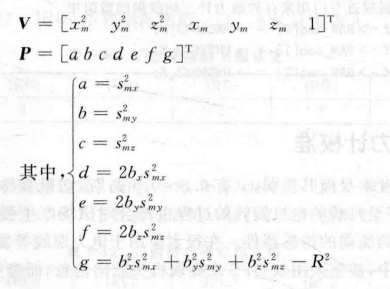 V = [x_m^2 y_m^2 z_m^2 x_m y_m z_m 1]^T
P = [a b c d e f g]^T
a = s_{mx}^2
b = s_{my}^2
c = s_{mz}^2
其中, d = 2b_x s_{mx}^2
e = 2b_y s_{my}^2
f = 2b_z s_{mz}^2
g = b_x^2 s_{mx}^2 + b_y^2 s_{my}^2 + b_z^2 s_{mz}^2 − R^2